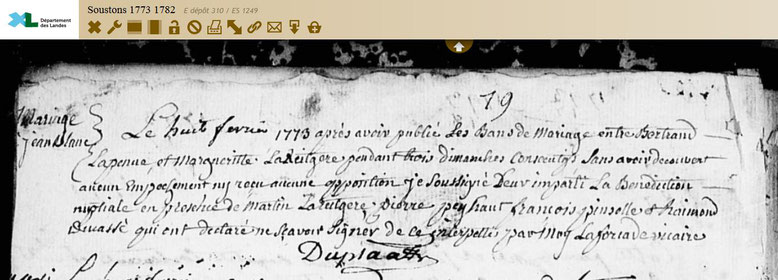 Département
des Landes
Soustons 1773 1782 E dépôt 310 / ES 1249
79
Mariage
jeanblanc
Le huit fevrier 1773 aprés avoir publié Les Bans de Mariage entre Bertrand
Lapenne et Margueritte Lareulgere pendant trois dimanches Consecutifs Sans avoir decouvert
aucun Empechement ny reçu aucune opposition je Soussigné Leur imparti La Benediction
nuptiale en presence de Martin Lareulgere pierre peyhaut francois pinsolle & Raimond
Duvassé qui ont declaré ne Scavoir Signer de ce interpellé par Moy Laforcade vicaire